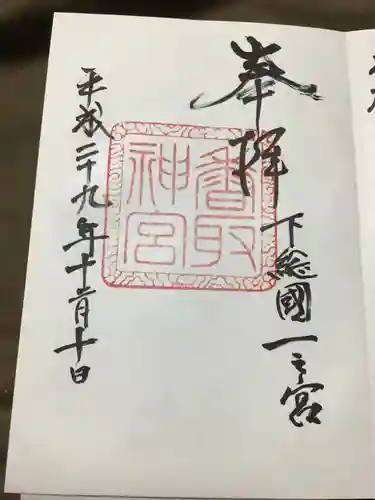 奉拝
下総國一之宮
香取神宮
平成二十九年十二月十日